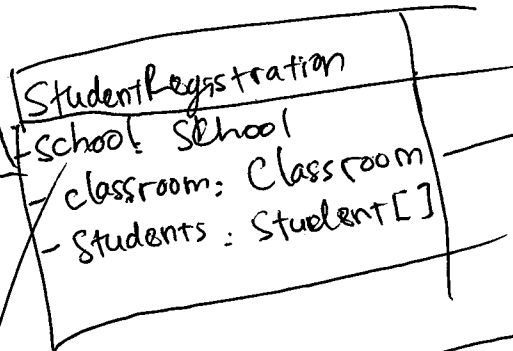 StudentRegistration
- school: School
- classroom: Classroom
- Students: Student[]